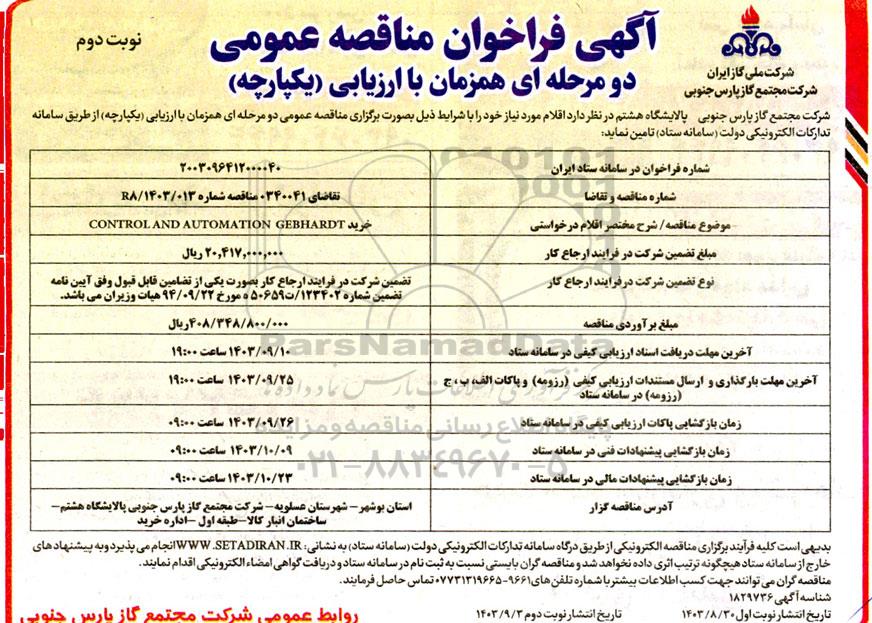 آگهی فراخوان مناقصه عمومی
نوبت دوم
دو مرحله ای همزمان با ارزیابی (یکپارچه)
شرکت ملی گاز ایران
شرکت مجتمع گاز پارس جنوبی
شرکت مجتمع گاز پارس جنوبی پالایشگاه هشتم در نظر دارد اقلام مورد نیاز خود را با شرایط ذیل بصورت برگزاری مناقصه عمومی دو مرحله ای همزمان با ارزیابی (یکپارچه) از طریق سامانه
تدارکات الکترونیکی دولت (سامانه ستاد) تامین نماید:
شماره فراخوان در سامانه ستاد ایران ۲۰۰۳۰۹۶۴۱۲۰۰۰۰۴۰
شماره مناقصه و تقاضا تقاضای ۰۳۴۰۰۴۱ مناقصه شماره R۸/۱۴۰۳/۰۱۳
موضوع مناقصه / شرح مختصر اقلام درخواستی خرید CONTROL AND AUTOMATION GEBHARDT
مبلغ تضمین شرکت در فرایند ارجاع کار ۲۰,۴۱۷,۰۰۰,۰۰۰ ریال
نوع تضمین شرکت در فرایند ارجاع کار تضمین شرکت در فرایند ارجاع کار بصورت یکی از تضامین قابل قبول وفق آیین نامه
تضمین شماره ۱۲۳۴۰۲/ت۵۰۶۵۹ ه مورخ ۹۴/۰۹/۲۲ هیات وزیران می باشد.
مبلغ برآوردی مناقصه ۴۰۸/۳۴۸/۸۰۰/۰۰۰ ریال
آخرین مهلت دریافت اسناد ارزیابی کیفی در سامانه ستاد ۱۴۰۳/۰۹/۱۰ ساعت ۱۹:۰۰
آخرین مهلت بارگذاری و ارسال مستندات ارزیابی کیفی (رزومه) و پاکات الف، ب، ج ۱۴۰۳/۰۹/۲۵ ساعت ۱۹:۰۰
(رزومه) در سامانه ستاد
زمان بازگشایی پاکات ارزیابی کیفی در سامانه ستاد ۱۴۰۳/۰۹/۲۶ ساعت ۰۹:۰۰
زمان بازگشایی پیشنهادات فنی در سامانه ستاد ۱۴۰۳/۱۰/۰۹ ساعت ۰۹:۰۰
زمان بازگشایی پیشنهادات مالی در سامانه ستاد ۱۴۰۳/۱۰/۲۳ ساعت ۰۹:۰۰
آدرس مناقصه گزار استان بوشهر – شهرستان عسلویه – شرکت مجتمع گاز پارس جنوبی پالایشگاه هشتم –
ساختمان انبار کالا – طبقه اول – اداره خرید
ParsNamadData
پایگاه اطلاع رسانی مناقصه و مزایده
۰۲۱-۸۸۳۴۹۶۷۰-۵
بدیهی است کلیه فرآیند برگزاری مناقصه الکترونیکی از طریق درگاه سامانه تدارکات الکترونیکی دولت (سامانه ستاد) به نشانی: WWW.SETADIRAN.IR انجام می پذیرد و به پیشنهاد های
خارج از سامانه ستاد هیچگونه ترتیب اثری داده نخواهد شد و مناقصه گران بایستی نسبت به ثبت نام در سامانه ستاد و دریافت گواهی امضاء الکترونیکی اقدام نمایند.
مناقصه گران می توانند جهت کسب اطلاعات بیشتر با شماره تلفن های ۹۶۶۱-۰۷۷۳۱۳۱۹۶۶۵ تماس حاصل فرمایند.
شناسه آگهی ۱۸۲۹۷۳۶
تاریخ انتشار نوبت اول ۱۴۰۳/۸/۳۰ تاریخ انتشار نوبت دوم ۱۴۰۳/۹/۳
روابط عمومی شرکت مجتمع گاز پارس جنوبی